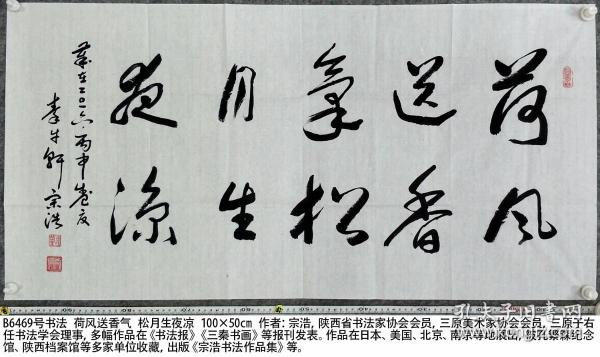 荷风
送香
气松
月生
夜凉
岁在二〇一六丙申盛夏
李牛轩宗浩
B6469号书法 荷风送香气 松月生夜凉 100×50cm 作者:宗浩, 陕西省书法家协会会员, 三原美术家协会会员, 三原于右
任书法学会理事, 多幅作品在《书法报》《三秦书画》等报刊发表。作品在日本、美国、北京、南京等地展出, 被孔繁森纪念
馆、陕西档案馆等多家单位收藏, 出版《宗浩书法作品集》等。